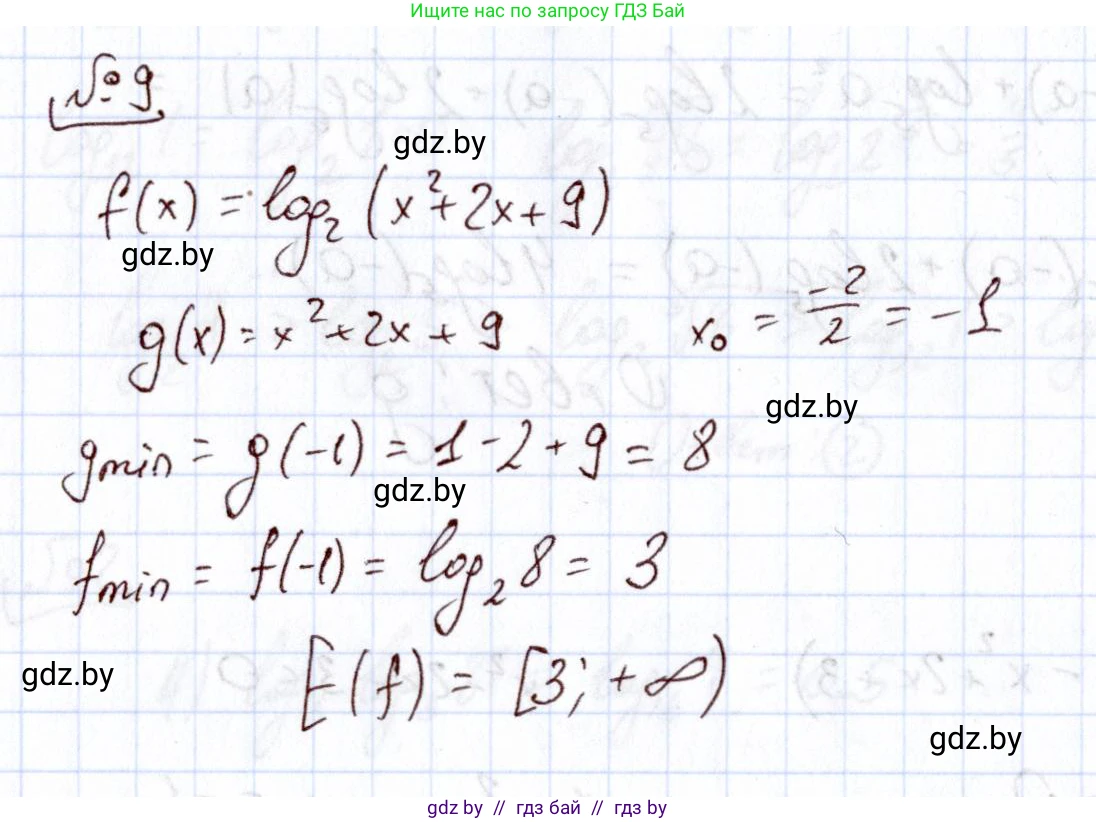 Ищите нас по запросу ГДЗ Бай
№9
gdz.by
f(x) = log₂(x²+2x+9)
gdz.by
g(x) = x²+2x+9 x₀ = -2/2 = -1
gdz.by
gmin = g(-1) = 1-2+9 = 8
gdz.by
fmin = f(-1) = log₂8 = 3
gdz.by E(f) = [3; +∞)
gdz.by
gdz by // гдз бай // гдз by